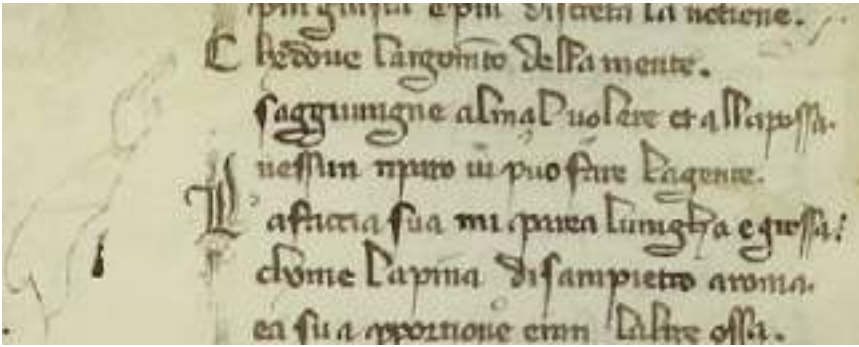 piu giusta e piu discreta la netiene.
C he doue largomẽto dellamente.
saggiuingne almal uolere et allapossa.
nessun riparo ui puo fare lagente.
L afaccia sua mi parea lungha e grossa.
chome lapina disampietro aroma.
ea sua pportione eran laltre ossa.